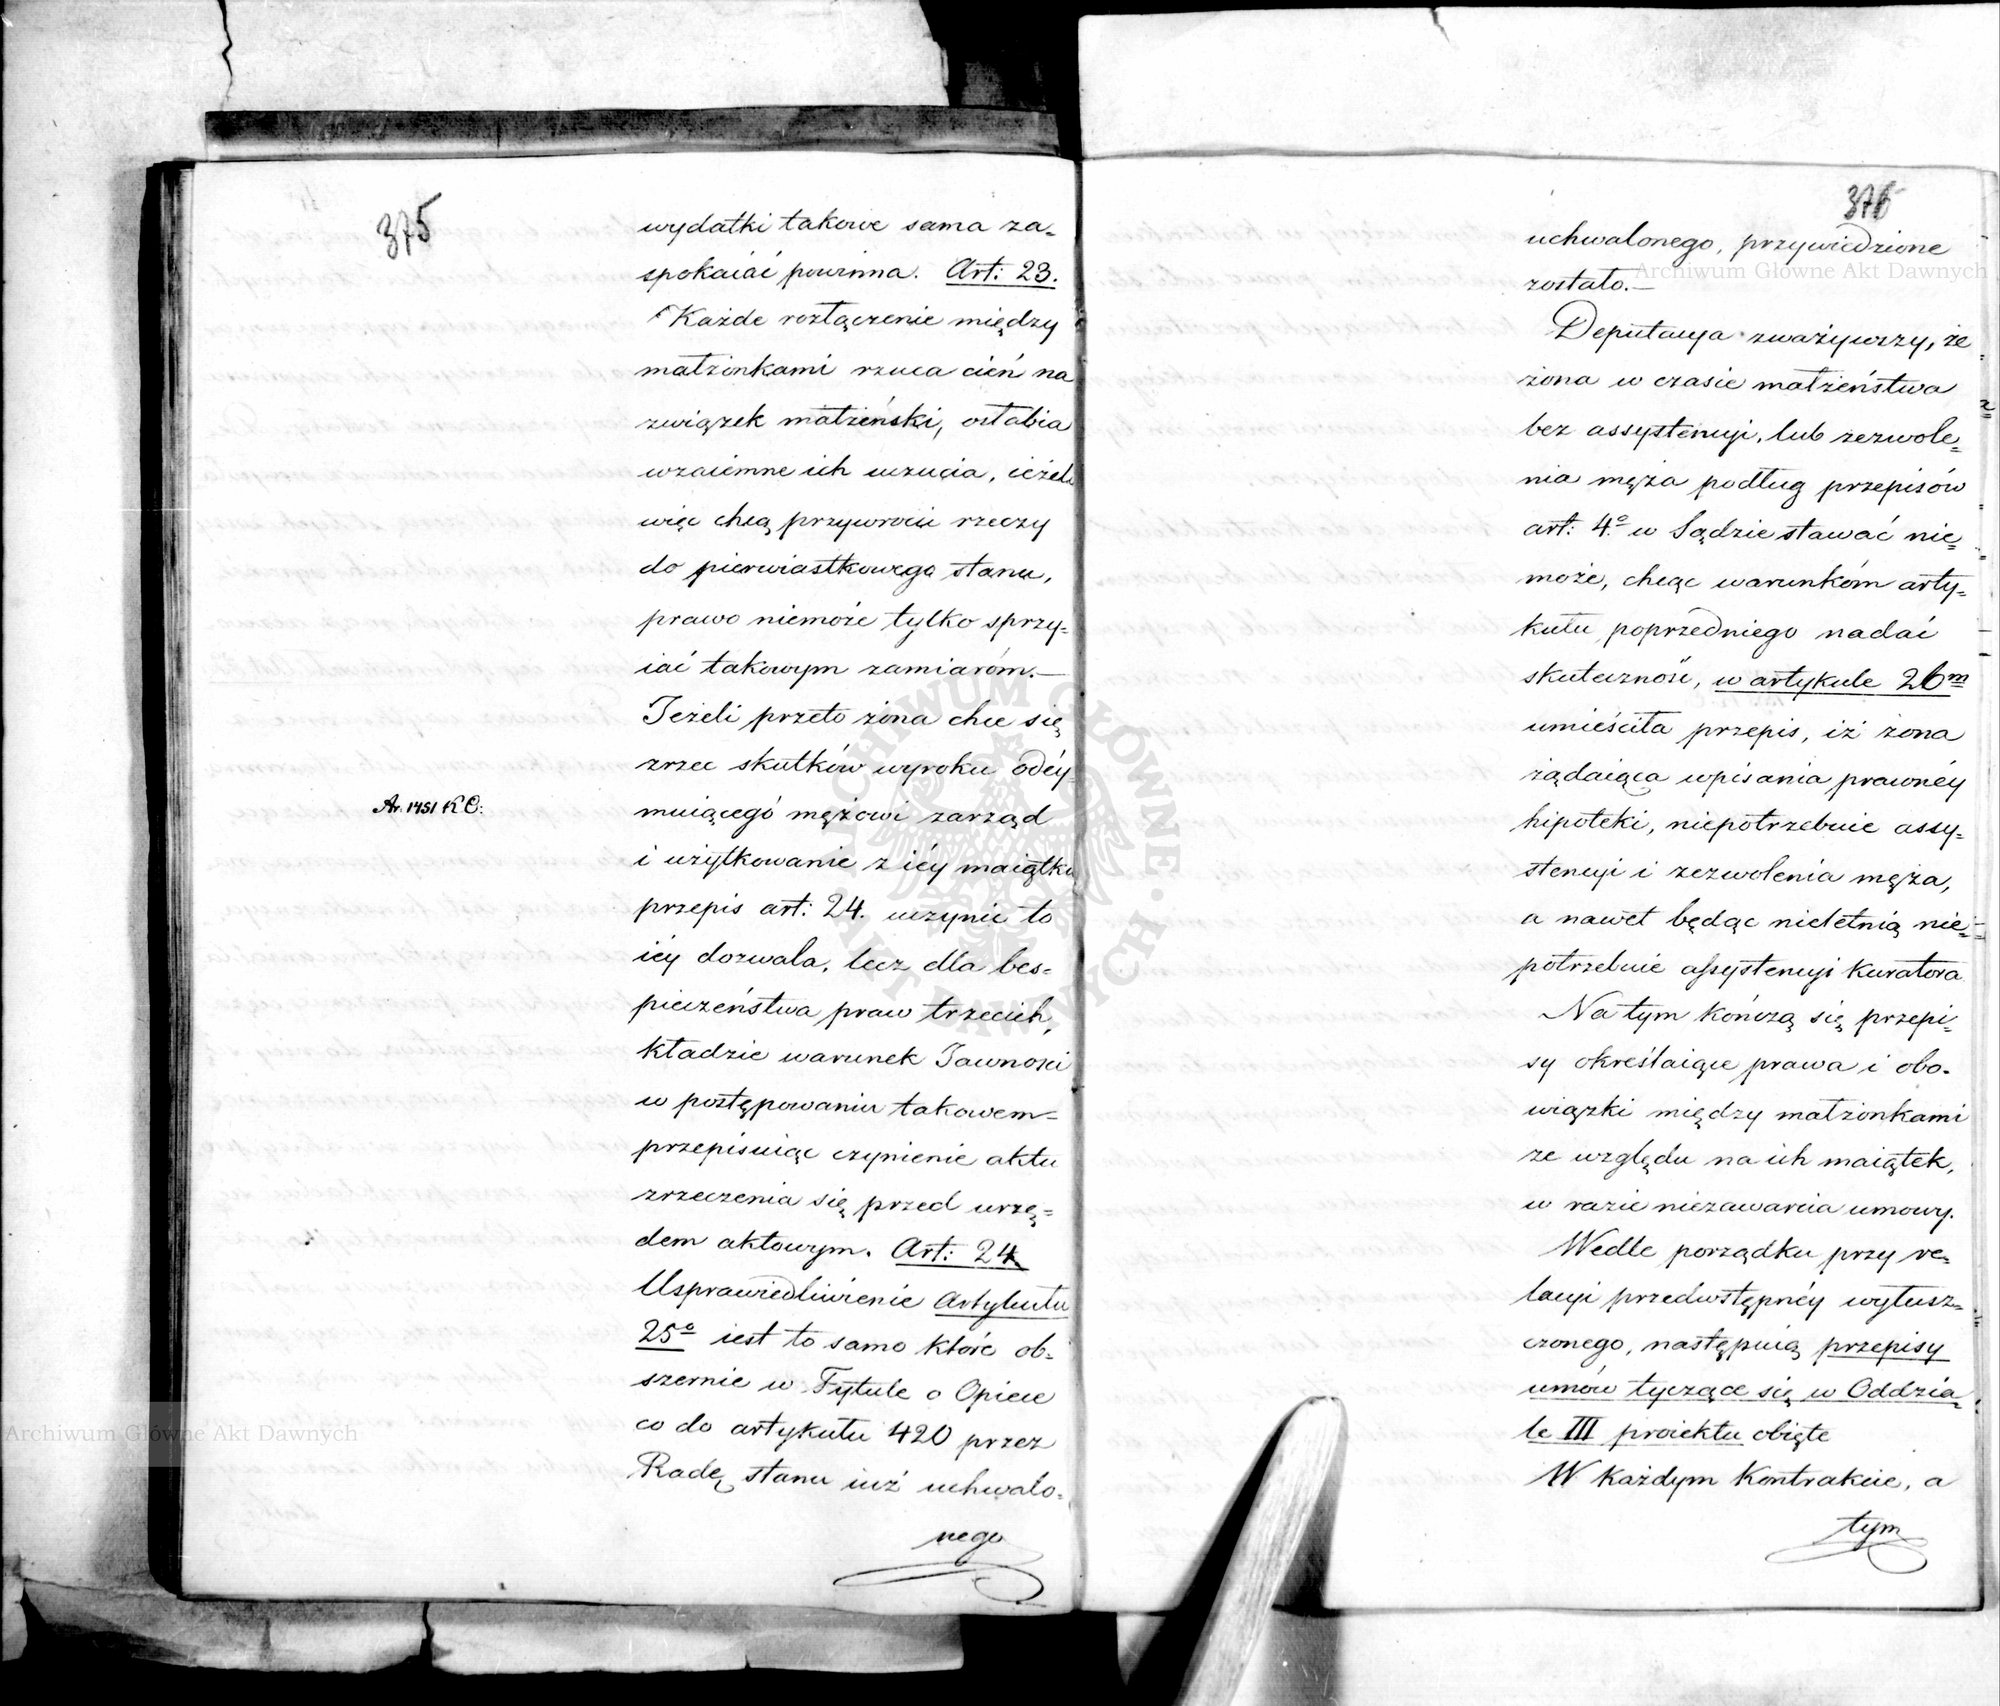 375
wydatki takowe sama za=
spokaiać powinna. Art: 23.
Każde rozłączenie między
małżonkami rzuca cień na
związek małżeński, osłabia
wzaiemne ich uczucia, ieżeli
więc chcą przywrócić rzeczy
do pierwiastkowego stanu,
prawo niemoże tylko sprzy=
iać takowym zamiaróm.—
Jeżeli przeto żona chce się
zrzec skutków wyroku odéy=
muiącego mężowi zarząd
Ar. 1451 KC:
i użytkowanie z iéy maiątku
przepis art: 24. uczynić to
iéy dozwala, lecz dla bes=
pieczeństwa praw trzecich,
kładzie warunek Jawności
w postępowaniu takowem=
przepisuiąc czynienie aktu
zrzeczenia się przed urzę=
dem aktowym. Art: 24
Usprawiedliwienie Artykułu
25º iest to samo które ob=
szernie w Tytule o Opiece
co do artykułu 420 przez
Radę stanu iuż uchwalo=
nego
376
uchwalonego, przywiedzione
zostało.—
Deputacya zważywszy, że
żona w czasie małżeństwa
bez assystencyi, lub zezwole=
nia męża podług przepisów
art: 4º w Sądzie stawać nie=
może, chcąc warunkóm arty=
kułu poprzedniego nadać
skuteczność, w artykule 26m
umieściła przepis, iż żona
żądaiąca wpisania prawnéy
hipoteki, niepotrzebuie assy=
stencyi i zezwolenia męża,
a nawet będąc nieletnią nie=
potrzebuie assystencyi Kuratora
Na tym kończą się przepi=
sy określaiące prawa i obo=
wiązki między małżonkami
ze względu na ich maiątek,
w razie niezawarcia umowy.
Wedle porządku przy re=
lacyi przedwstępnéy wytusz=
czonego, następuią przepisy
umów tyczące się w Oddzia=
le III proiektu obięte
W każdym Kontrakcie, a
tym
Archiwum Główne Akt Dawnych
Archiwum Główne Akt Dawnych
ARCHIWUM GŁÓWNE AKT DAWNYCH